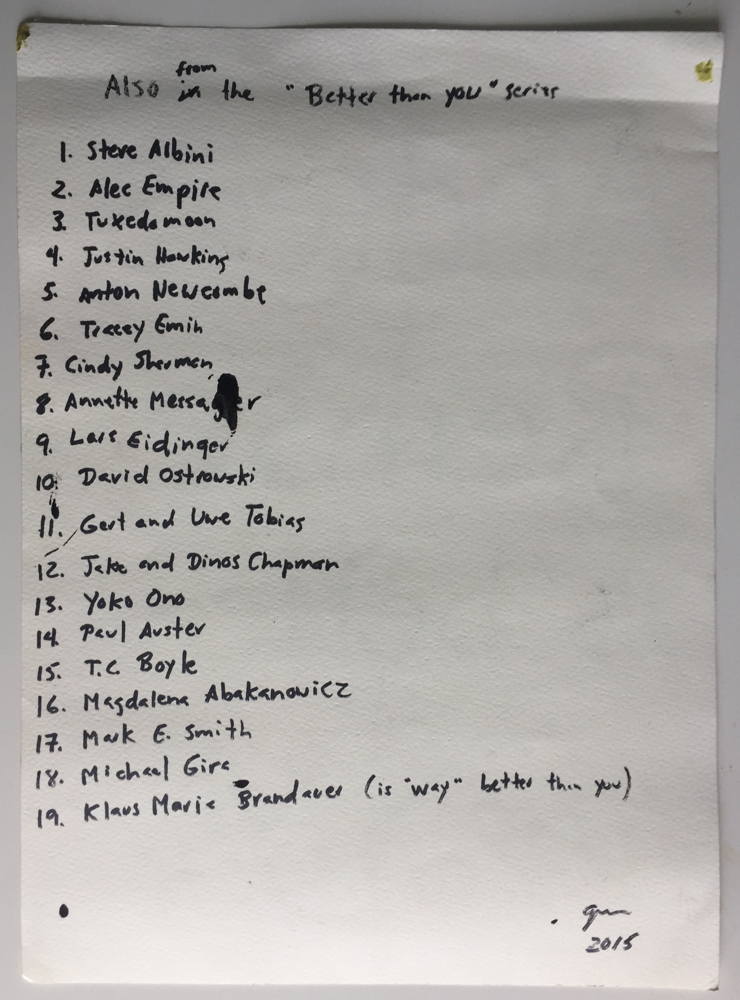 Also from in the "Better than you" series
1. Steve Albini
2. Alec Empire
3. Tuxedomoon
4. Justin Hawking
5. Anton Newcombe
6. Tracey Emin
7. Cindy Sherman
8. Annette Messager
9. Lars Eidinger
10. David Ostrowski
11. Gert and Uwe Tobias
12. Jake and Dinos Chapman
13. Yoko Ono
14. Paul Auster
15. T.C. Boyle
16. Magdalena Abakanowicz
17. Mark E. Smith
18. Michael Gira
19. Klaus Maria Brandauer (is "way" better than you)
2015